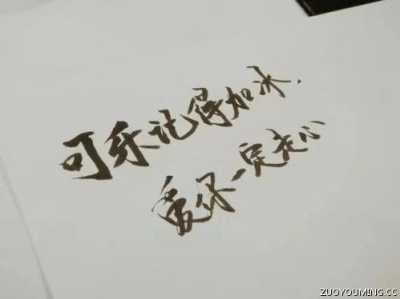 可乐记得加冰.
爱你一定走心
ZUOYOUMING.CC